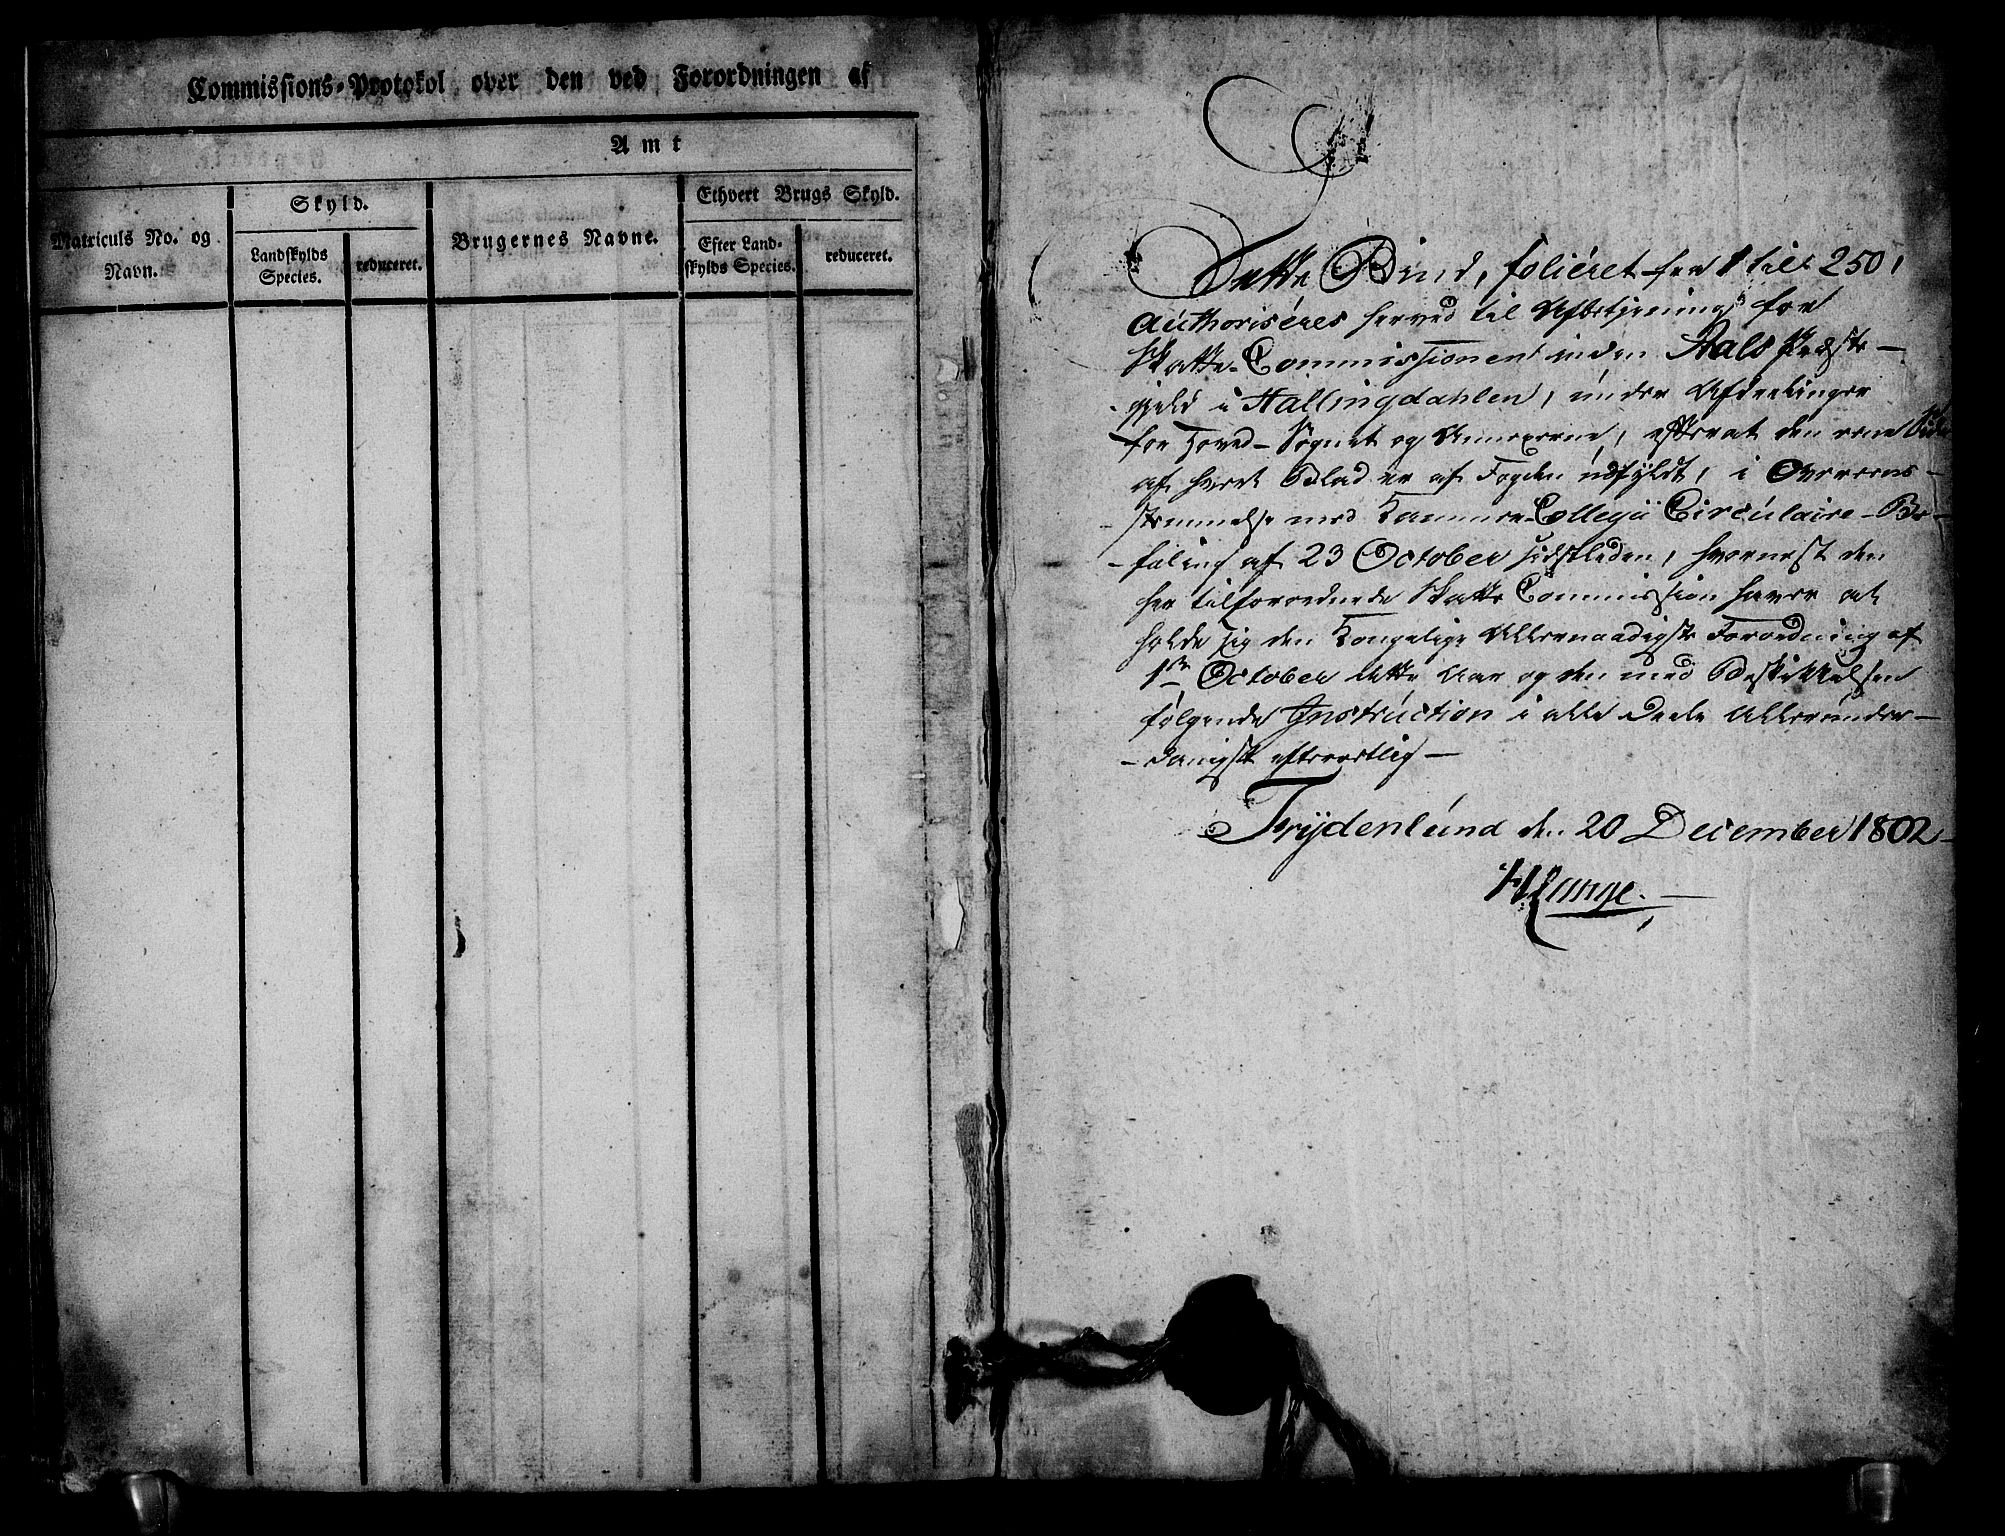 Commissions-Protokol over den ved Forordningen af
Amt
Matriculs No. og
Navn.
Skyld.
Landskylds
Species.
reduceret.
Brugernes Navne.
Ethvert Brugs Skyld.
Efter Land-
skylds Species.
reduceret.
Dette Bind, foliéret fra 1 til 250,
authoriséres herved til Afbetjening for
Skatte-Commissionen inden Aals Præste-
gjeld i Hallingdahlen, under Afdeelinger
for Hoved-Sognet og Annexerne, efterat den eene Side
af hvert Blad er af Fogden udfyldt, i Overeens-
stemmelse med Kammer-Collegii Circulaire-Be-
faling af 23 October sidstleden, hvornest den
her tilforordnede Skatte Commission haver at
holde sig den Kongelige Allernaadigste Forordning af
1ste October dette Aar og den med Beskikkelsen
følgende Instruction i alle Deele Allerunder-
danigst efterretlig-
Frydenlund den 20 December 1802